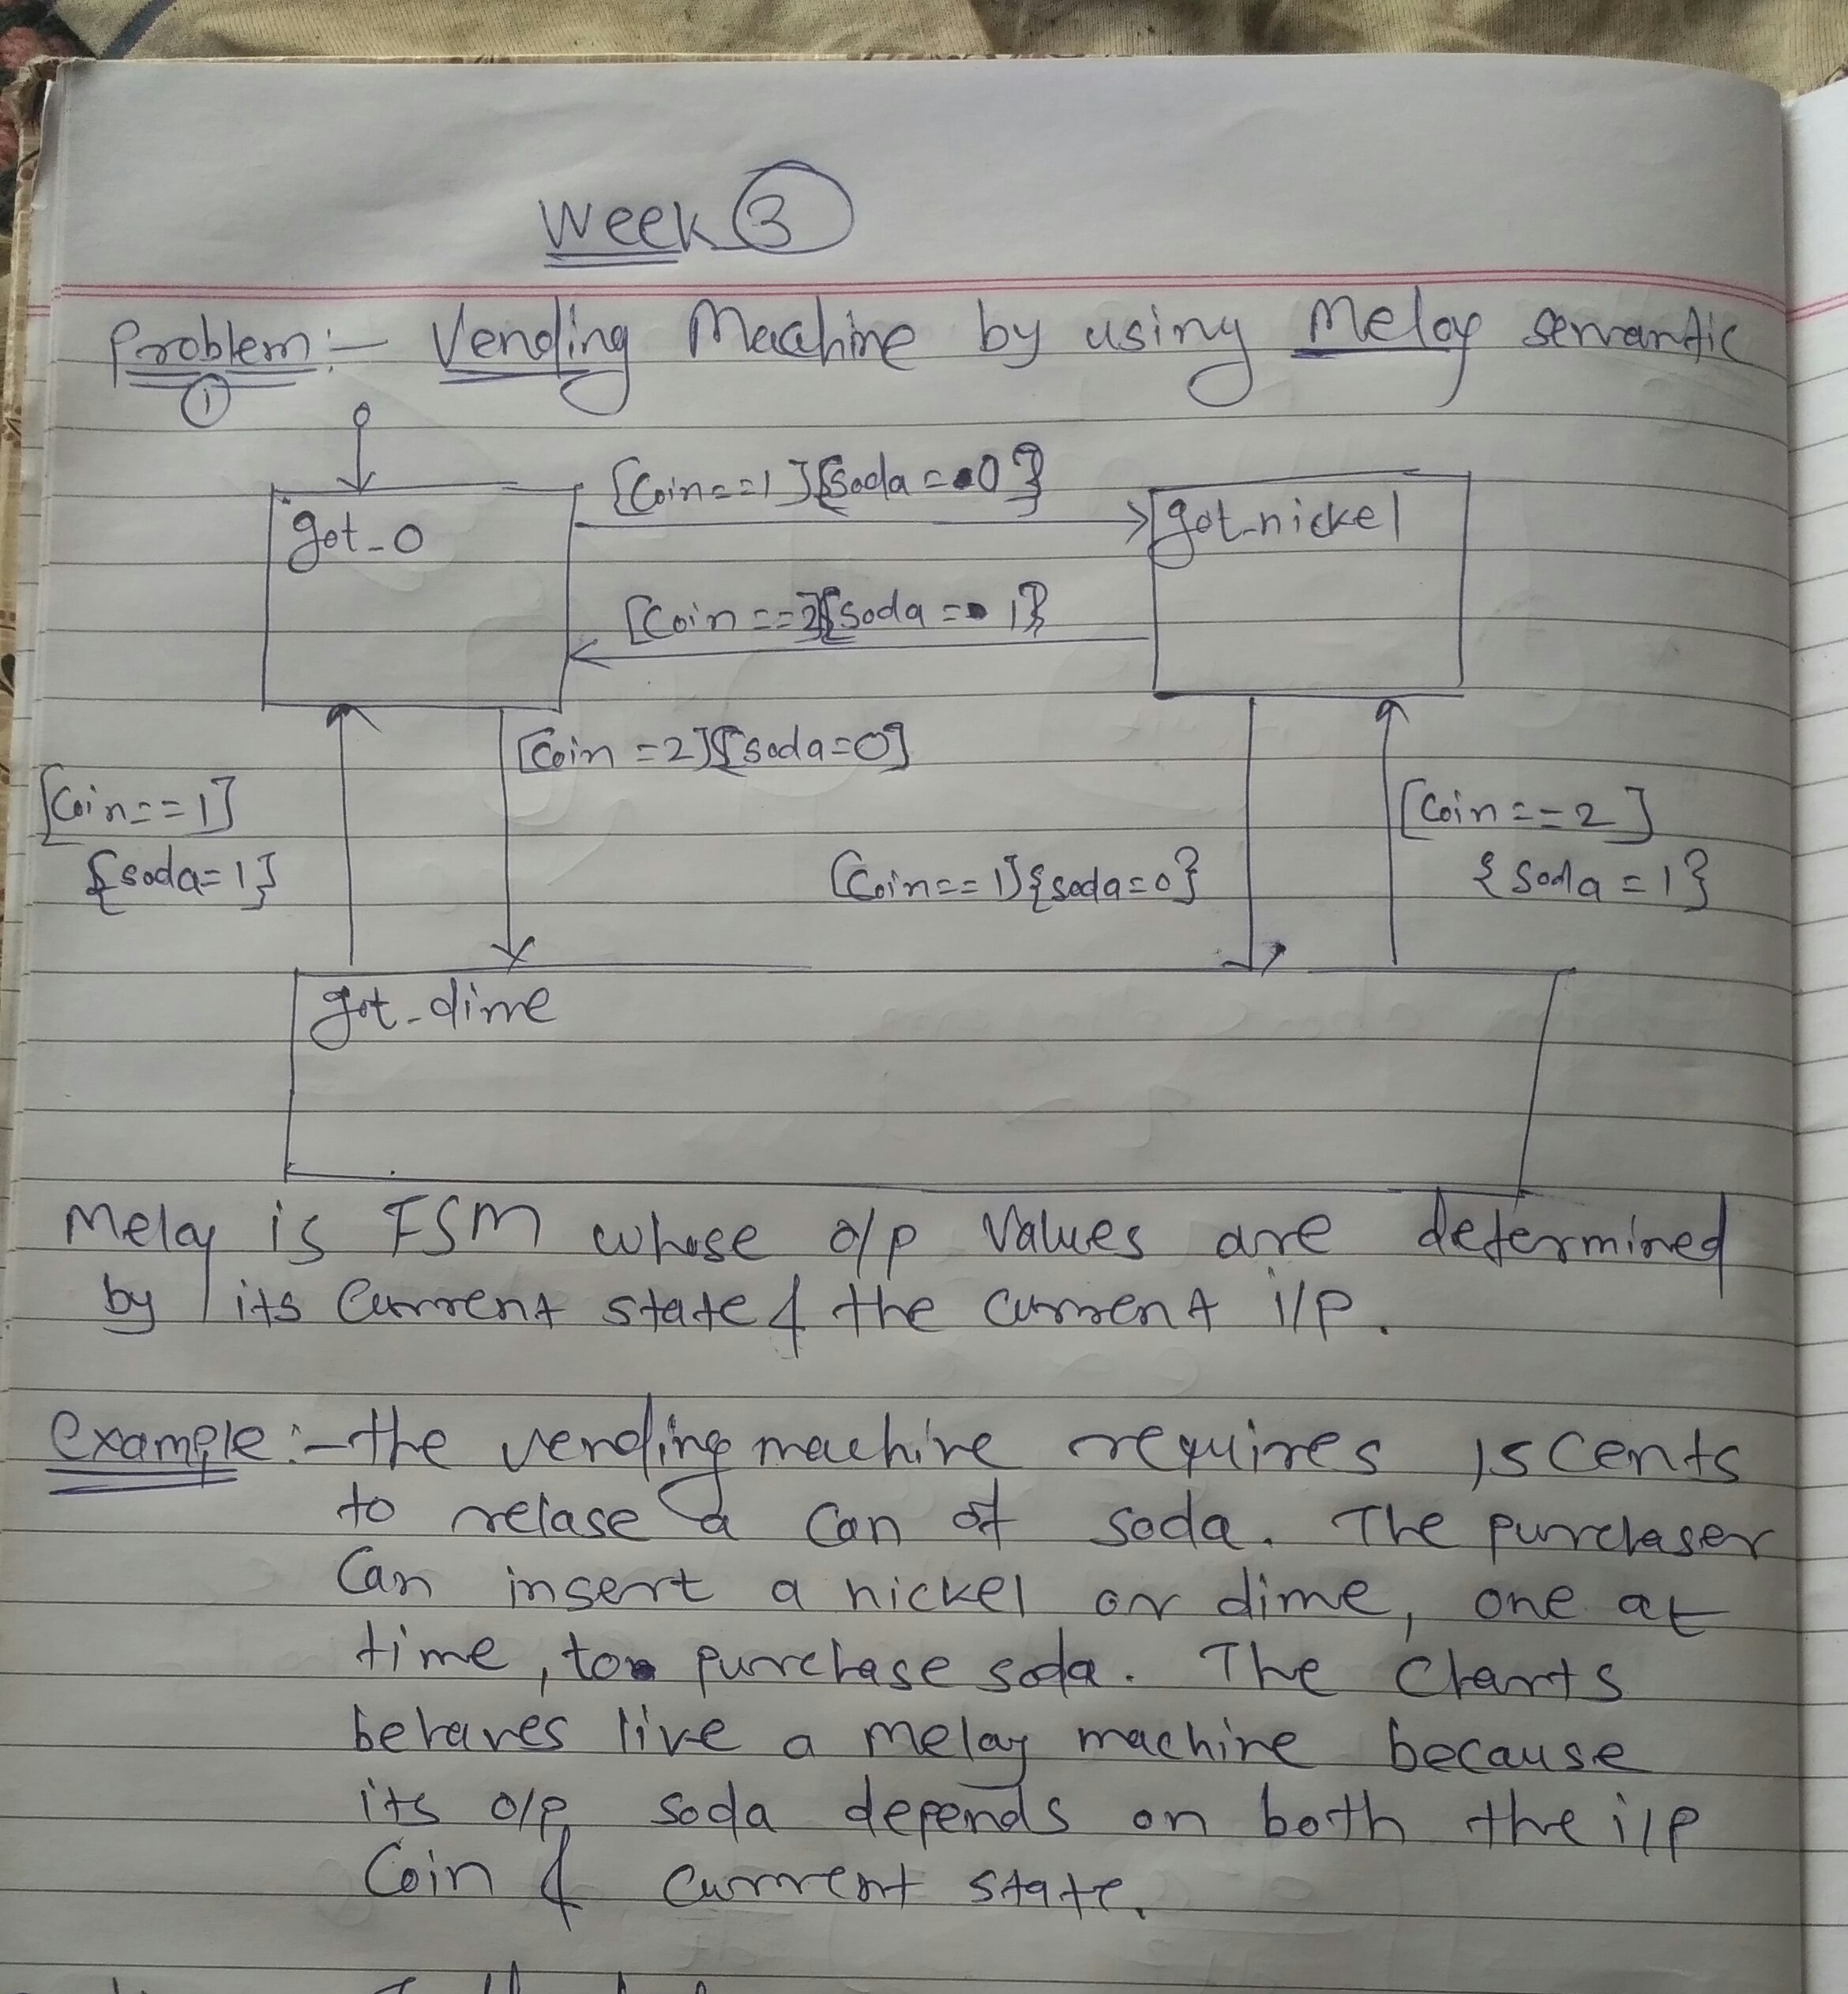 Week 3
Problem:- Vending Machine by using Melay semantic
1
{Coin==1]{soda=0}
got_0
got_nickel
[Coin==2]{soda=1}
[Coin=2]{soda=0}
[Coin==1]
{soda=1}
[Coin==2]
{soda=1}
[Coin==1]{soda=0}
got_dime
Melay is FSM whose o/p Values are determined
by its Current state & the current i/p.
Example:- the vending machine requires 15 Cents
to relase a Can of soda. The purchaser
Can insert a nickel or dime, one at
time, to purchase soda. The Charts
behaves like a melay machine because
its o/p soda depends on both the i/p
Coin & current state.